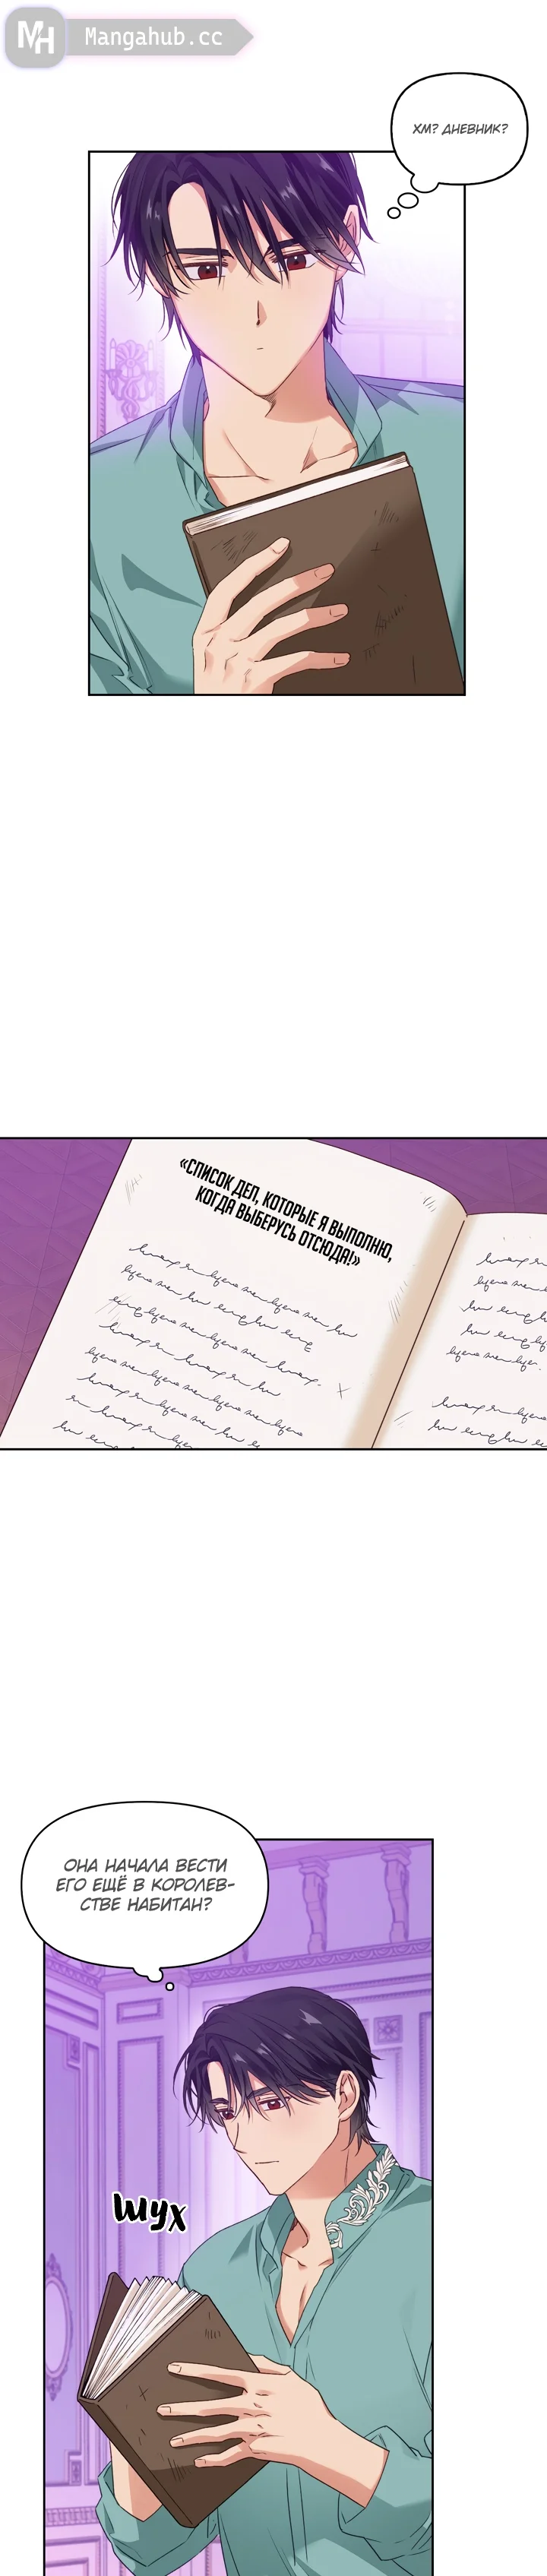 MH Mangahub.cc
ХМ? ДНЕВНИК?
«СПИСОК ДЕЛ, КОТОРЫЕ Я ВЫПОЛНЮ,
КОГДА ВЫБЕРУСЬ ОТСЮДА!»
ОНА НАЧАЛА ВЕСТИ
ЕГО ЕЩЁ В КОРОЛЕВ-
СТВЕ НАБИТАН?
ШУХ